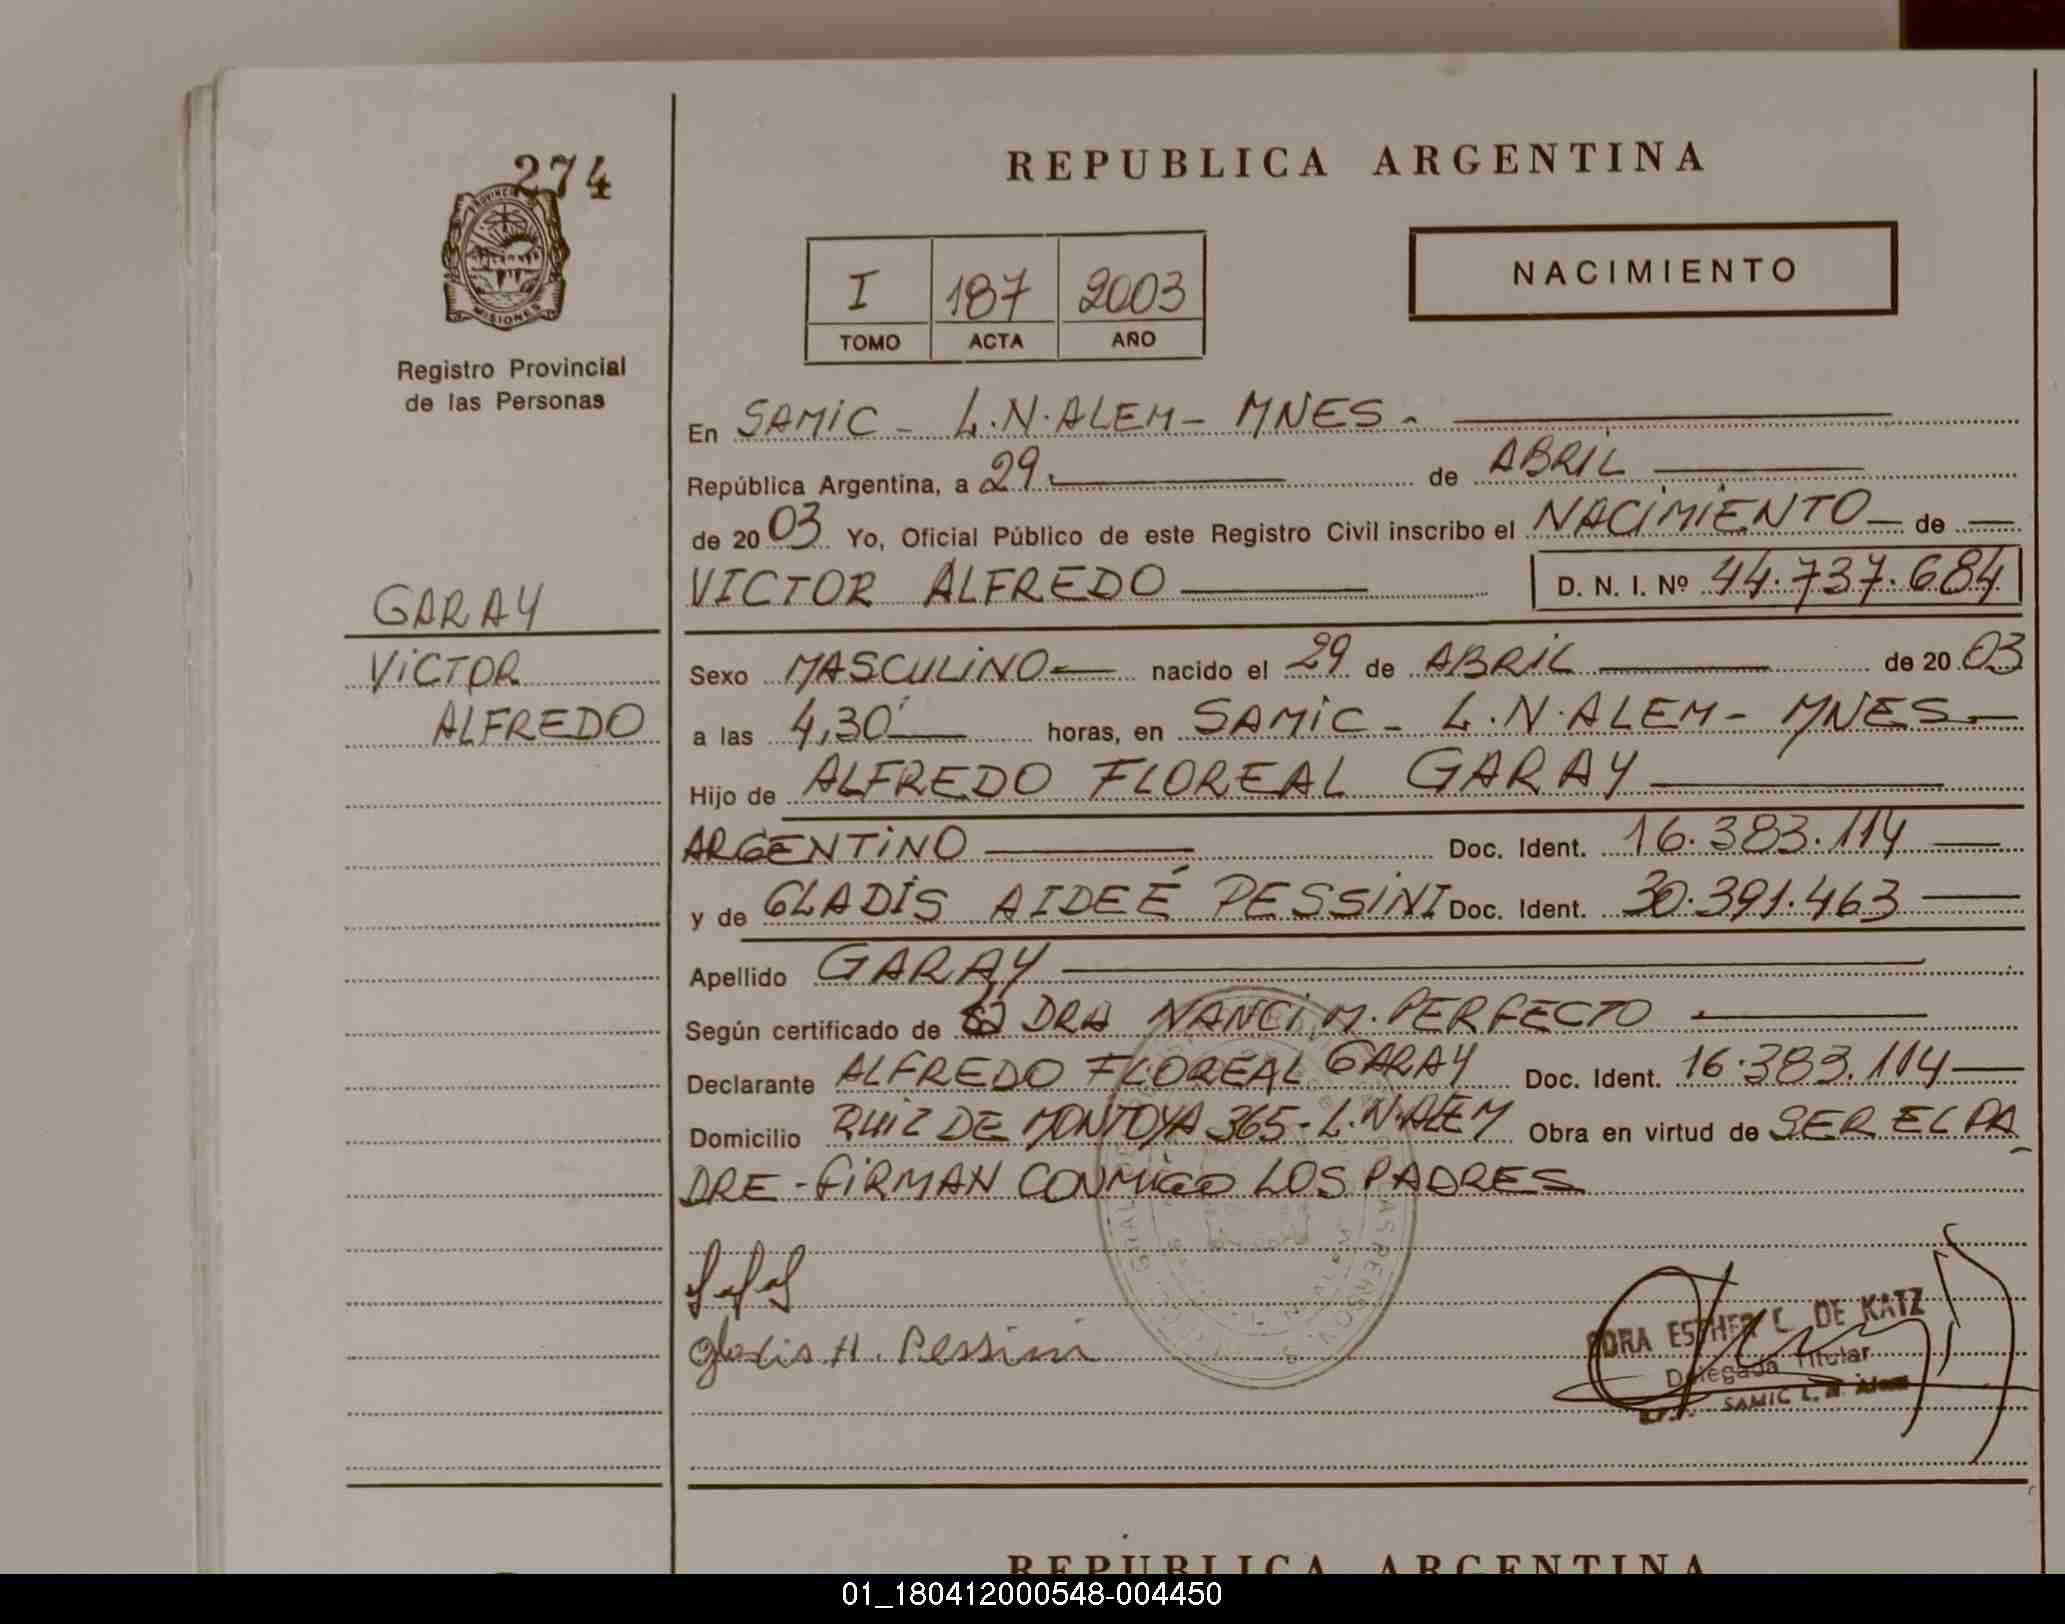 274
PROVINCIA DE
MISIONES
Registro Provincial
de las Personas
GARAY
VICTOR
ALFREDO
REPUBLICA ARGENTINA
I 187 2003
TOMO ACTA AÑO
NACIMIENTO
En SAMIC - L.N.ALEM - MNES -
República Argentina, a 29 de ABRIL
de 2003 Yo, Oficial Público de este Registro Civil inscribo el NACIMIENTO de
VICTOR ALFREDO D. N. I. Nº 44.737.684
Sexo MASCULINO nacido el 29 de ABRIL de 2003
a las 4,30' horas, en SAMIC - L.N.ALEM - MNES -
Hijo de ALFREDO FLOREAL GARAY
ARGENTINO Doc. Ident. 16.383.114
y de GLADIS AIDEÉ PESSINI Doc. Ident. 30.391.463
Apellido GARAY
Según certificado de DRA NANCI M. PERFECTO
Declarante ALFREDO FLOREAL GARAY Doc. Ident. 16.383.114
Domicilio RUIZ DE MONTOYA 365 - L.N.ALEM Obra en virtud de SER EL PA
DRE - FIRMAN CONMIGO LOS PADRES
Gladis H. Pessini
ESTHER C. DE KATZ
Delegada Titular
SAMIC L. N. Alem
REPUBLICA ARGENTINA
01_180412000548-004450